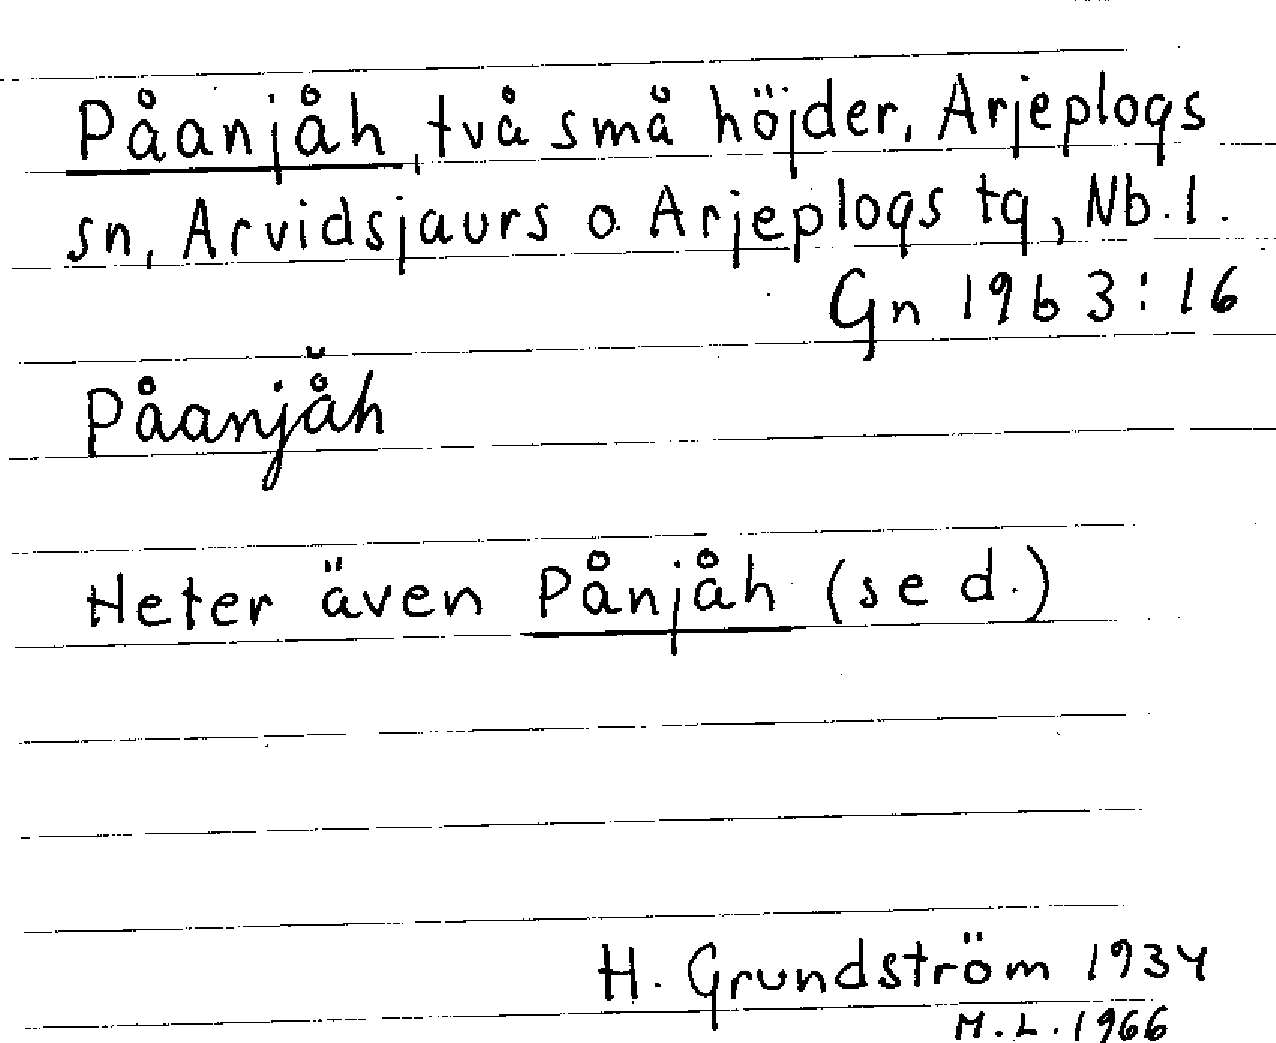 Påanjåh, två små höjder, Arjeplogs
sn, Arvidsjaurs o. Arjeplogs tg, Nb. l.
Gn 19b 3:16
Påanjå̆h
Heter även Pånjåh (se d.)
H. Grundström 1934
M.L. 1966